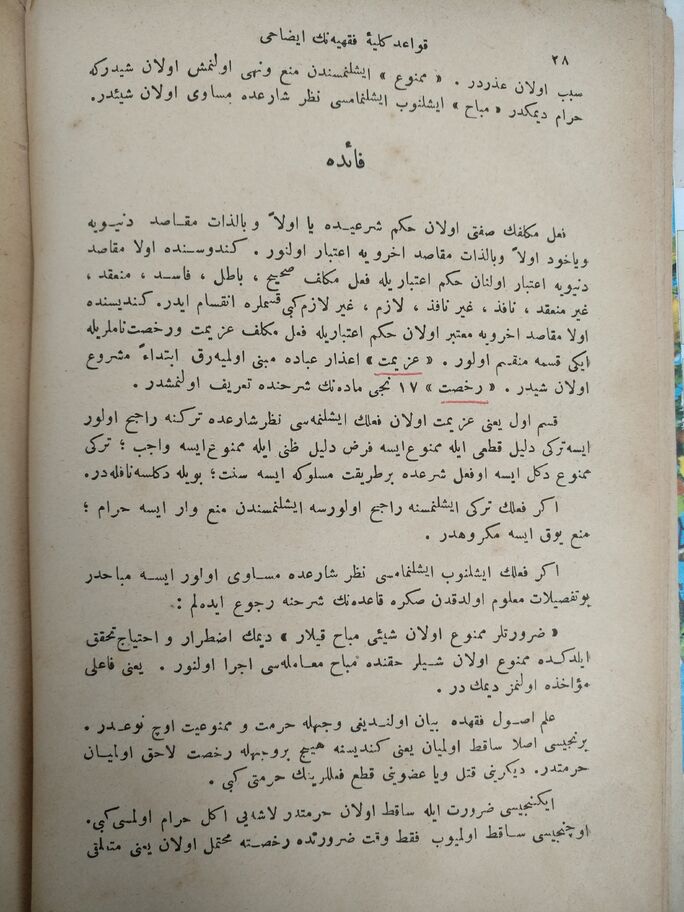 ٢٨
قواعد كليۀ فقهيه نك ايضاحى
سبب اولان عذردر . « ممنوع » ايشلنمسندن منع ونهى اولنمش اولان شيدركه
حرام ديمكدر « مباح » ايشلنوب ايشلنمامسى نظر شارعده مساوى اولان شيئدر.
فائده
فعل مكلفك صفتى اولان حكم شرعيده يا اولاً وبالذات مقاصد دنيويه
وياخود اولاً وبالذات مقاصد اخرويه اعتبار اولنور . كندوسنده اولا مقاصد
دنيويه اعتبار اولنان حكم اعتباريله فعل مكلف صحيح ، باطل ، فاسد ، منعقد ،
غير منعقد ، نافذ ، غير نافذ ، لازم ، غير لازم كبى قسملره انقسام ايدر. كنديسنده
اولا مقاصد اخرويه معتبر اولان حكم اعتباريله فعل مكلف عزيمت ورخصت ناملريله
ايكى قسمه منقسم اولور . « عزيمت » اعذار عباده مبنى اولميه رق ابتداءً مشروع
اولان شيدر . « رخصت » ١٧ نجى ماده نك شرحنده تعريف اولنمشدر .
قسم اول يعنى عزيمت اولان فعلك ايشلنمه سى نظر شارعده تركنه راجح اولور
ايسه تركى دليل قطعى ايله ممنوع ايسه فرض دليل ظنى ايله ممنوع ايسه واجب ؛ تركى
ممنوع دكل ايسه اوفعل شرعده برطريقت مسلوكه ايسه سنت؛ بويله دكلسه نافله در.
اكر فعلك تركى ايشلنمسنه راجح اولورسه ايشلنمسندن منع وار ايسه حرام ؛
منع يوق ايسه مكروهدر .
اكر فعلك ايشلنوب ايشلنمامسى نظر شارعده مساوى اولور ايسه مباحدر
بوتفصيلات معلوم اولدقدن صكره قاعده نك شرحنه رجوع ايده لم :
« ضرورتلر ممنوع اولان شيئى مباح قيلار » ديمك اضطرار و احتياج تحقق
ايلدكده ممنوع اولان شيلر حقنده مباح معامله سى اجرا اولنور . يعنى فاعلى
مؤاخذه اولنمز ديمك در .
علم اصول فقهده بيان اولنديغى وجهله حرمت و ممنوعيت اوچ نوعدر .
برنجيسى اصلا ساقط اولميان يعنى كنديسنه هيچ بروجهله رخصت لاحق اولميان
حرمتدر. ديكرينى قتل ويا عضوينى قطع فعللرينك حرمتى كبى .
ايكنجيسى ضرورت ايله ساقط اولان حرمتدر لاشه‌يى اكل حرام اولمسى كبى.
اوچنجيسى ساقط اولميوب فقط وقت ضرورتده رخصته محتمل اولان يعنى متعلقى